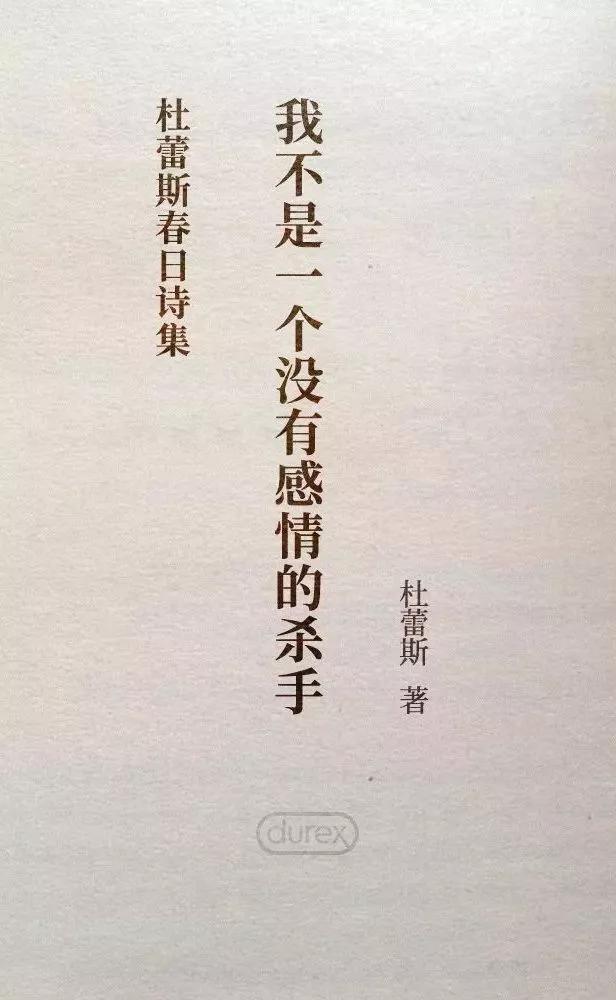 杜蕾斯 著
我不是一个没有感情的杀手
杜蕾斯春日诗集
durex